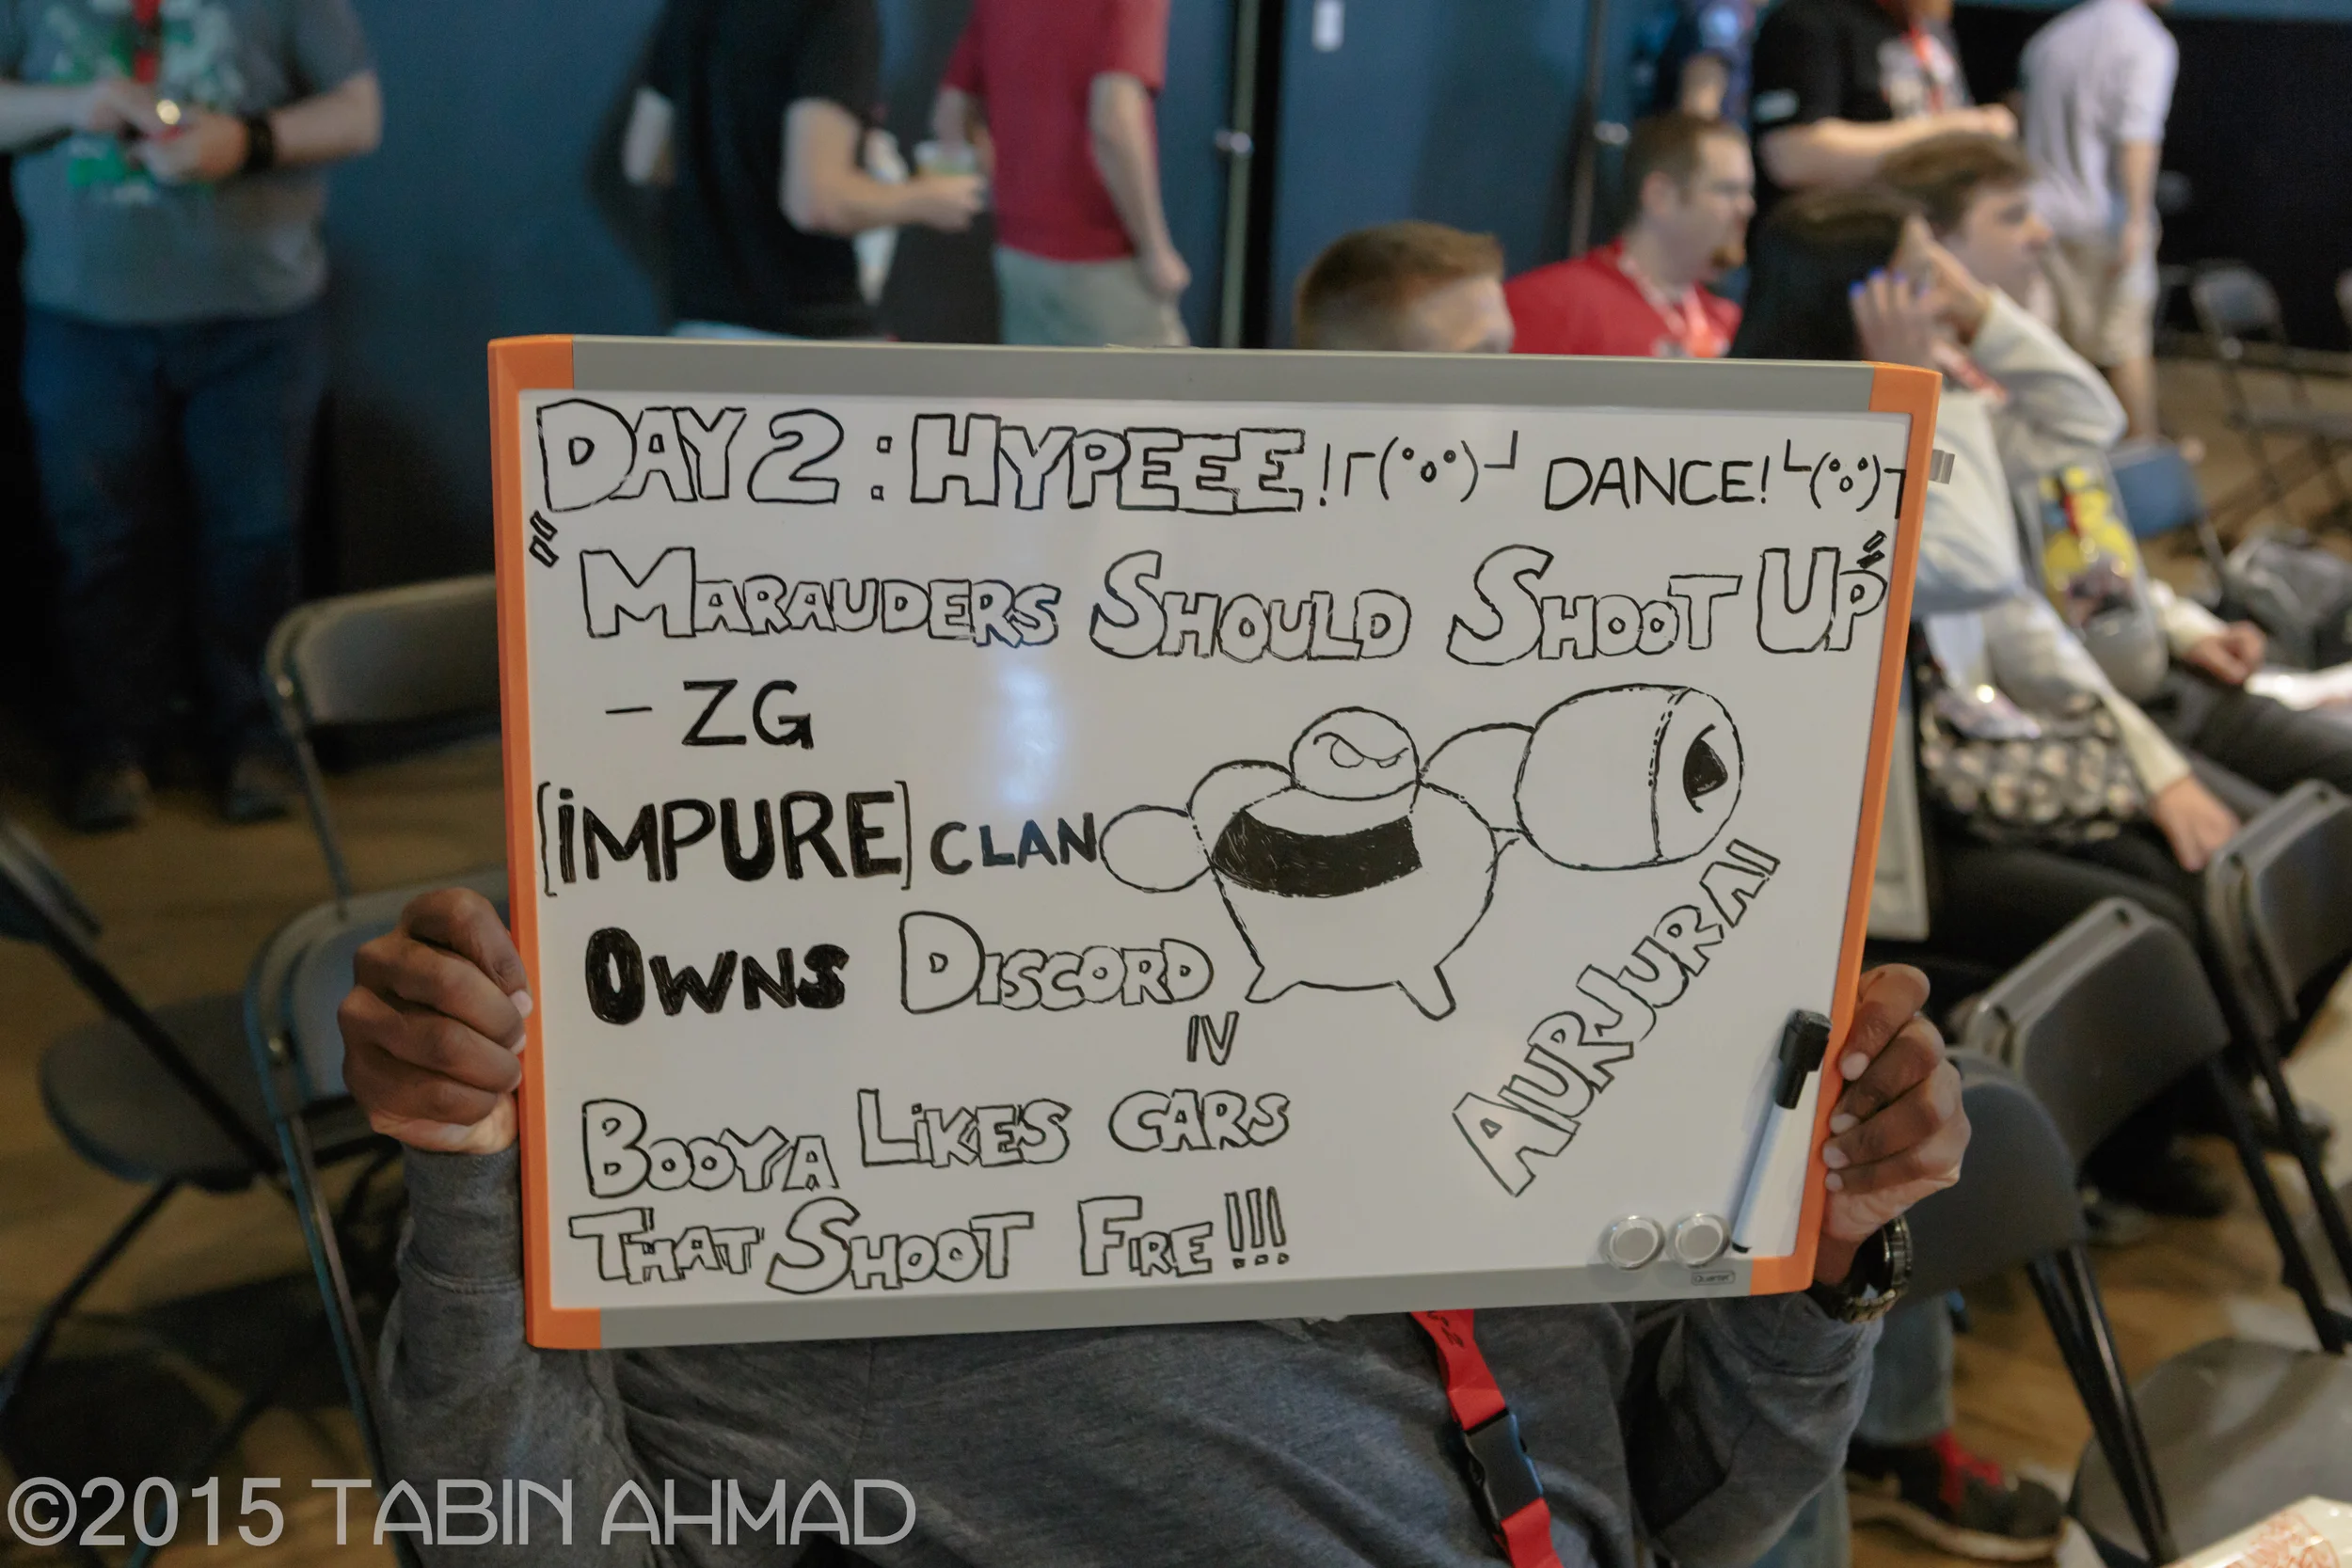 DAY 2 : HYPEEE! ┌(°o°)┘ DANCE! └(°o°)┐
"MARAUDERS SHOULD SHOOT UP"
- ZG
[iMPURE] CLAN
OWNS DISCORD
IV
AURJURAI
BOOYA LiKES CARS
THAT SHOOT FIRE!!!
Quartet
©2015 TABIN AHMAD